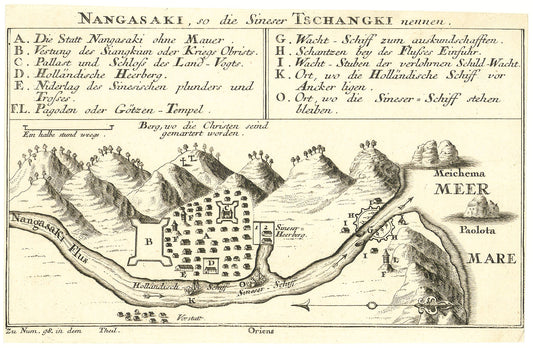 NANGASAKI, so die Sineser TSCHANGKI nennen.
A. Die Statt Nangasaki ohne Mauer.
B. Vestung des Siangkiun oder Kriegs Obrists.
C. Pallast und Schloß des Land-Vogts.
D. Holländische Heerberg.
E. Niderlag des Sinesischen plunders und
Trosses.
F.L. Pagoden oder Götzen-Tempel.
G. Wacht-Schiff zum auskundschafften.
H. Schantzen bey des Flusses Einfuhr.
I. Wacht-Stuben der verlohrnen Schild-Wacht.
K. Ort, wo die Holländische Schiff vor
Ancker ligen.
O. Ort, wo die Sineser-Schiff stehen
bleiben.
Ein halbe stund weegs.
Berg, wo die Christen seind
gemartert worden.
Meichema
MEER
Paolota
MARE
Nangasaki Flus
B
C
D
E
Sineser
Heerberg.
G
H
I
L
F
Holländisch Schiff
K
O
Sineser Schiff
Vorstatt
Zu Num. 98. in dem Theil.
Oriens